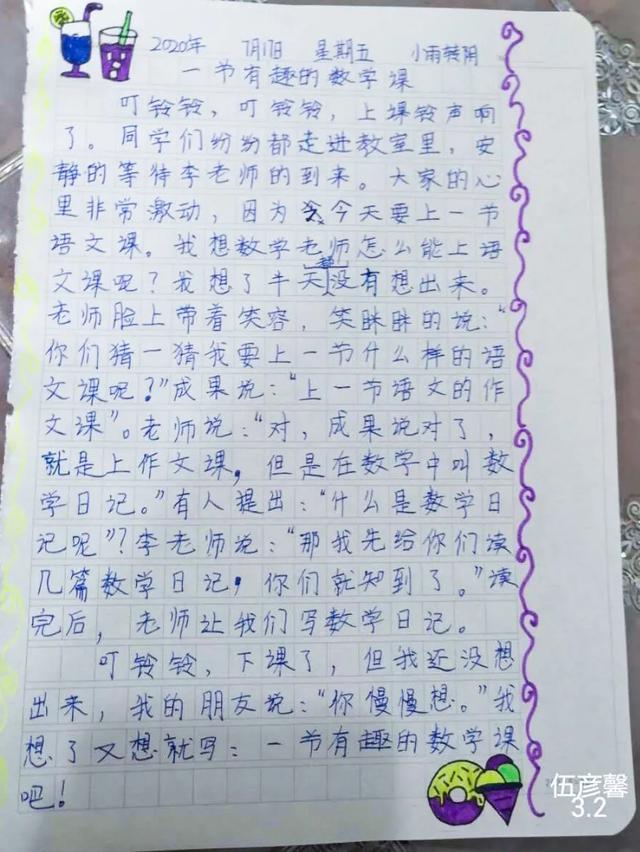 2020年 7月17日 星期五 小雨转阴
一节有趣的数学课
叮铃铃，叮铃铃，上课铃声响
了。同学们纷纷都走进教室里，安
静的等待李老师的到来。大家的心
里非常激动，因为今天要上一节
语文课。我想数学老师怎么能上语
文课呢？我想了半天都没有想出来。
老师脸上带着笑容，笑眯眯的说：“
你们猜一猜我要上一节什么样的语
文课呢？”成果说：“上一节语文的作
文课”。老师说：“对，成果说对了，
就是上作文课，但是在数学中叫数
学日记。”有人提出：“什么是数学日
记呢”？李老师说：“那我先给你们读
几篇数学日记，你们就知到了。”读
完后，老师让我们写数学日记。
叮铃铃，下课了，但我还没想
出来，我的朋友说：“你慢慢想。”我
想了又想就写：一节有趣的数学课
吧！
伍彦馨
3.2